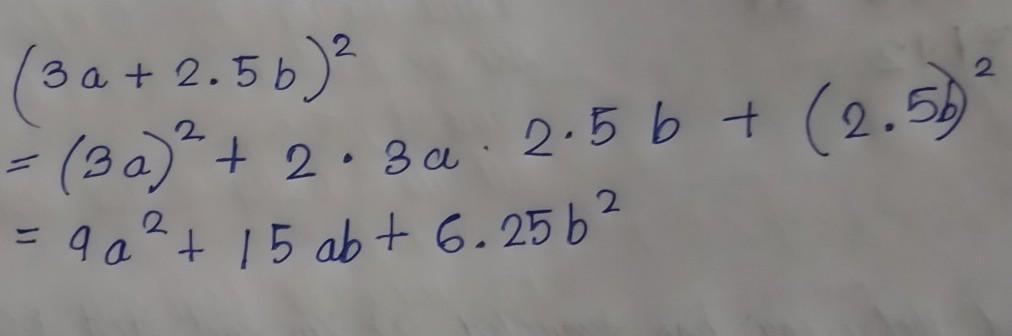 (3a + 2.5b)²
= (3a)² + 2 · 3a · 2.5 b + (2.5b)²
= 9a² + 15 ab + 6.25b²